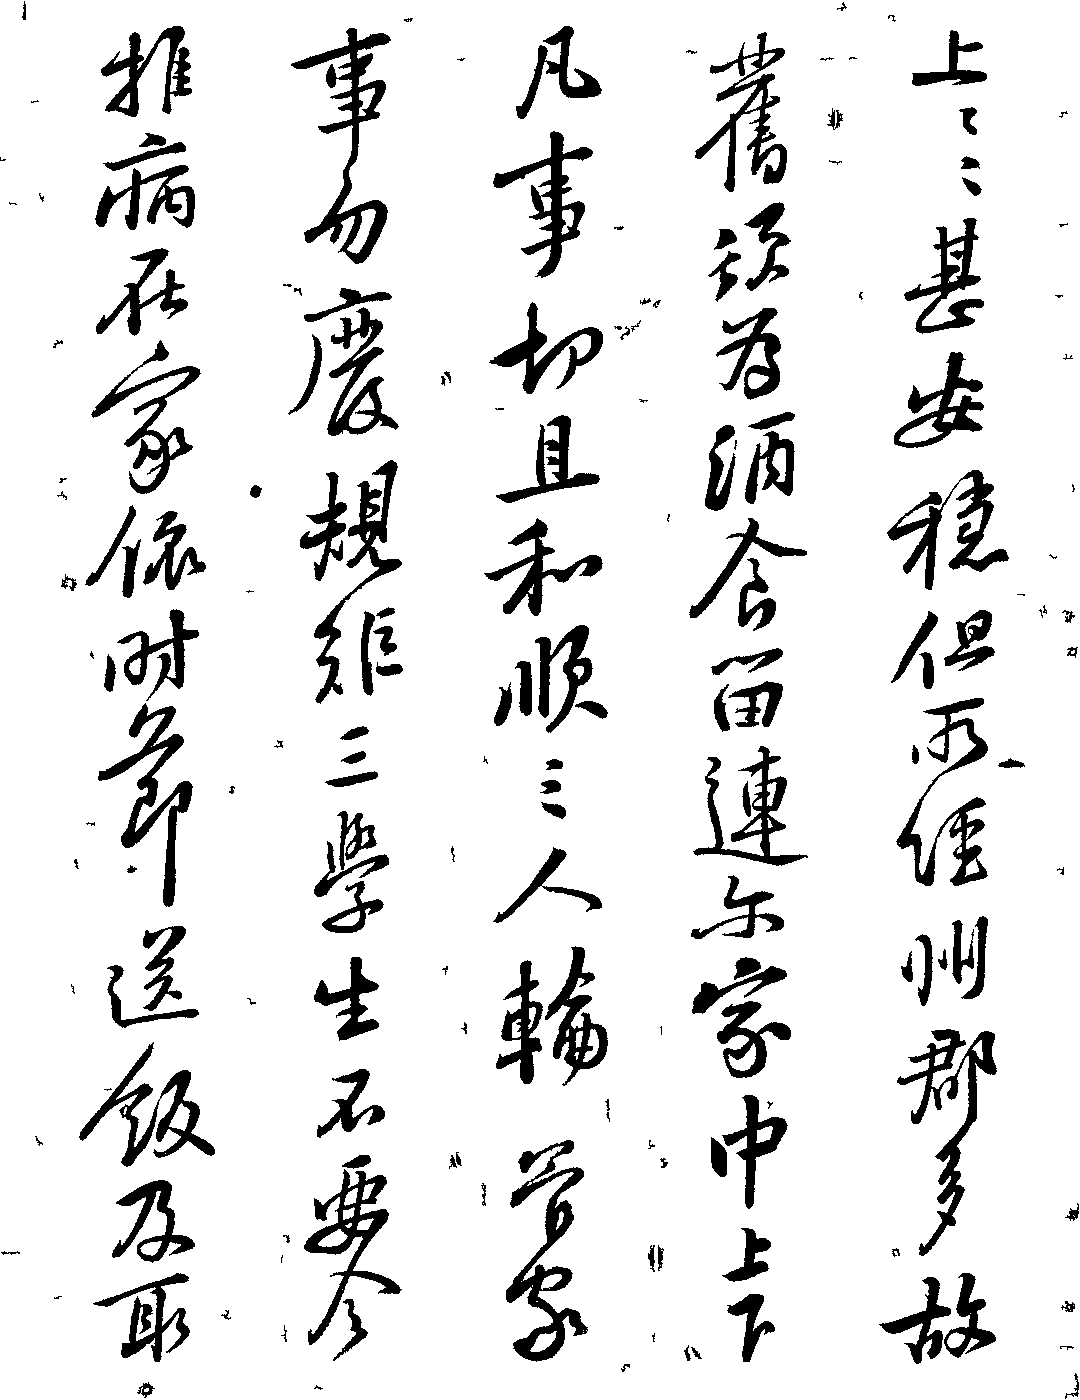 上〻〻甚安穩但所經州郡多故
舊頗為酒食留連尔家中上下
凡事切且和順三人輪管家
事勿廢規矩三學生不要令
推病在家依时節送飯及取